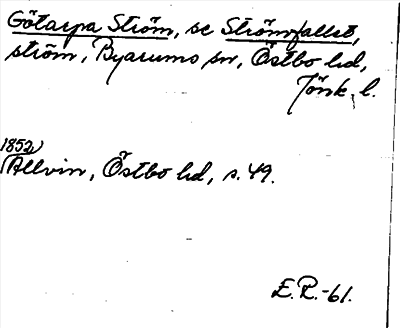 Götarpa Ström, se Strömfallet,
ström, Byarums sn, Östbo hd,
Jönk. l.
1852
Allvin, Östbo hd, s. 49.
E.R.-61.